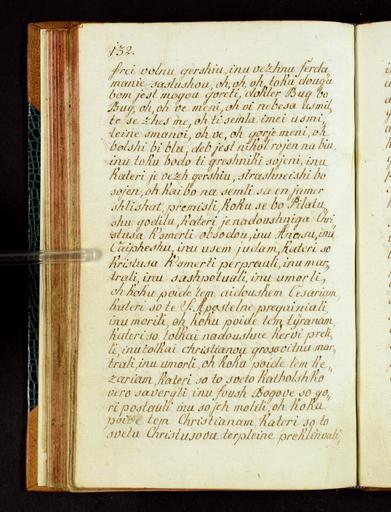 132.
frei volnu gershiu, inu vezhnu ferda,
manie saslushou, oh, oh, oh, toku douga
bom jest mogou goreti, dokler Bug bo
Bug, oh, oh ve meni, oh vi nebesa usmil,
te se zhes me, oh ti semla imei usmi,
leine smanoi, oh ve, oh gorje meni, oh
bolshi bi blu, deb jest nikol rojen na biu,
inu toku bodo ti greshniki sojeni, inu
kateri je vezh gershiu, strashneishi bo
sojen, oh kai bo na semli sa en jamer
shlishat, premisli, koku se bo Pilatu,
shu godilu, kateri je nadoushniga Chri
stusa k'smerti obsodou, inu
Caipheshu, inu usem judam, kateri so
Kristusa k'smerti perprauli, inu mar,
trali, inu sashpotuali, inu umorli,
oh koku poide tem aidoushem Cesariam,
kateri so te Apostelne pregainiali,
inu morili, oh koku poide tem tÿranam,
kateri so tolkai nadoushne kervi preli,
li, inu tolkai christianou grosovitnu mar,
trali, inu umorli, oh koku poide tem ke,
zariam, kateri so to sveto katholshko
vero savergli, inu foush Bogove so go,
ri postauli inu so jeh molili, oh koku
poide tem Christianam, kateri so to
svetu Christusovu terpleine preklinvali,